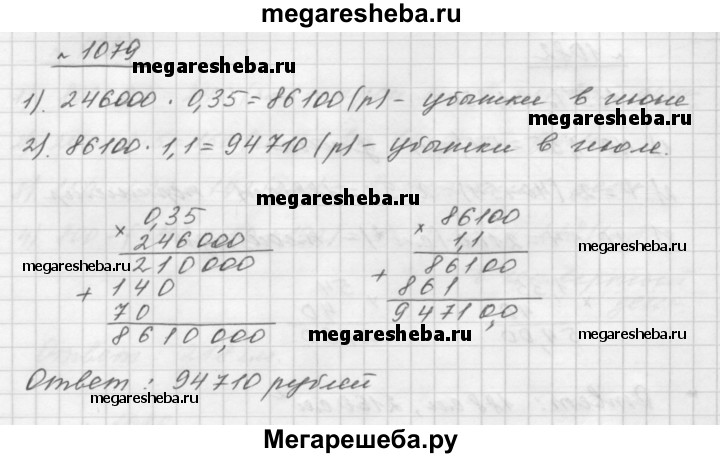 megaresheba.ru
№ 1079
megaresheba.ru
1). 246000 · 0,35 = 86100 (р) - убытки в июне
megaresheba.ru
2). 86100 · 1,1 = 94710 (р) - убытки в июле.
megaresheba.ru
× 0,35
246000
210000
+ 140
70
8610000,00
× 86100
1,1
86100
+ 861
94710,0
megaresheba.ru
megaresheba.ru
megaresheba.ru
megaresheba.ru
Ответ : 94710 рублей
megaresheba.ru
Мегарешеба.ру